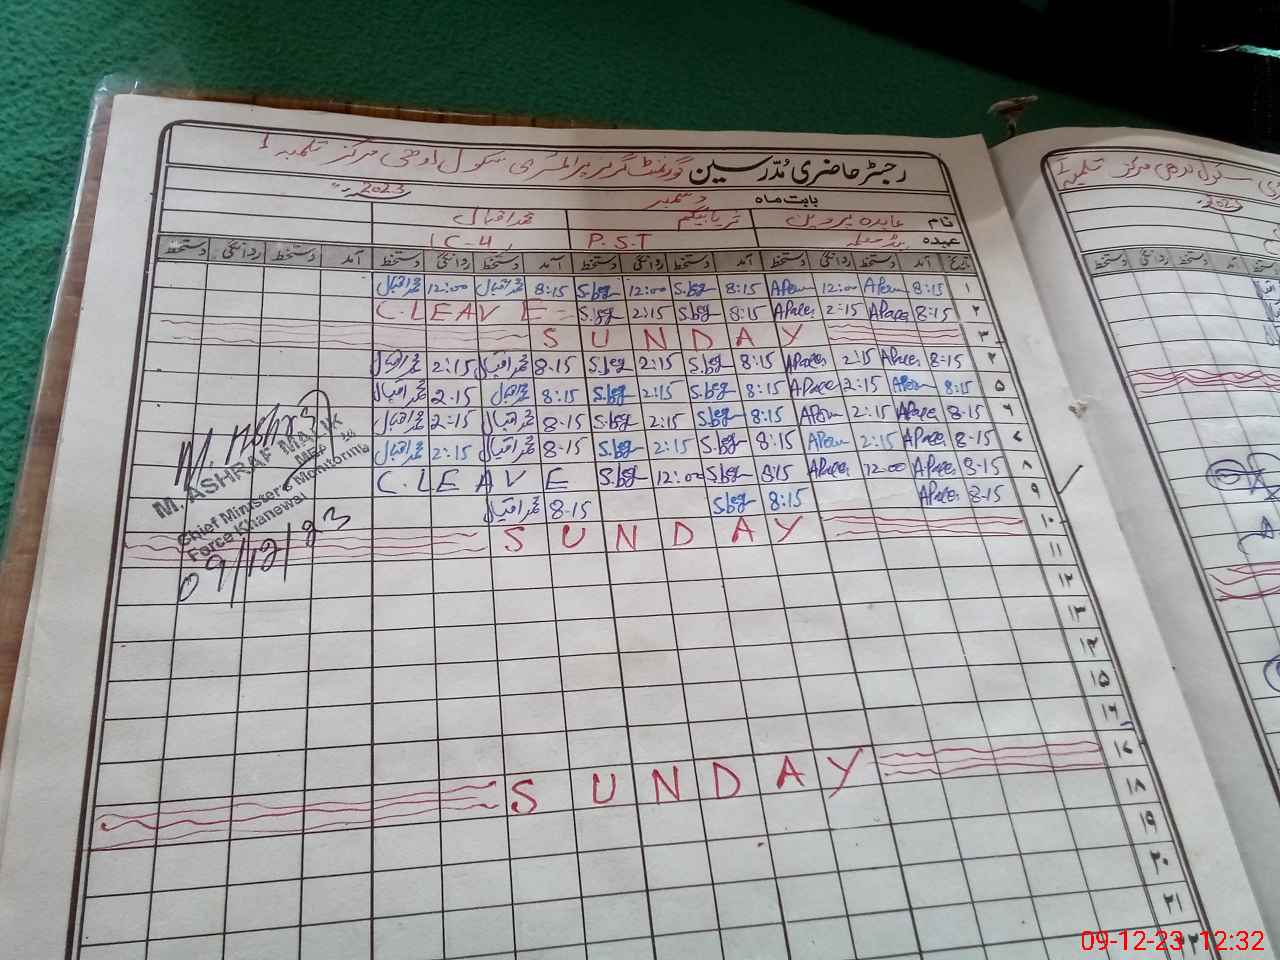 رجسٹر حاضری مُدّرسین گورنمنٹ گرلز پرائمری سکول اوچی مرکز تلمبہ 1
بابت ماہ دسمبر 2023
نام عابدہ پروین ثریا بیگم محمد اقبال
عہدہ ہیڈ معلمہ P.S.T C-4
تاریخ آمد دستخط روانگی دستخط آمد دستخط روانگی دستخط آمد دستخط روانگی دستخط آمد دستخط روانگی دستخط
۱ 8:15 12:00 8:15 S.beg 12:00 S.beg 8:15 محمد اقبال 12:00 محمد اقبال
۲ 8:15 2:15 8:15 S.beg 2:15 S.beg C.LEAVE
۳ SUNDAY
۴ 8:15 2:15 8:15 S.beg 2:15 S.beg 8-15 محمد اقبال 2:15 محمد اقبال
۵ 8:15 2:15 8:15 S.beg 2:15 S.beg 8:15 محمد اقبال 2:15 محمد اقبال
۶ 8-15 2:15 8:15 S.beg 2:15 S.beg 8-15 محمد اقبال 2-15 محمد اقبال
۷ 8-15 2:15 8:15 S.beg 2:15 S.beg 8-15 محمد اقبال 2:15 محمد اقبال
۸ 8-15 12:00 8:15 S.beg 12:00 S.beg C.LEAVE
۹ 8-15 8:15 S.beg 8-15 محمد اقبال
۱۰ SUNDAY
۱۱
۱۲
۱۳
۱۴
۱۵
۱۶
۱۷ SUNDAY
۱۸
۱۹
۲۰
۲۱
M. ASHRAF MALIK
MEA
Chief Minister's Monitoring
Force Khanewal
09/12/23
2023
آمد دستخط روانگی دستخط
09-12-23 12:32